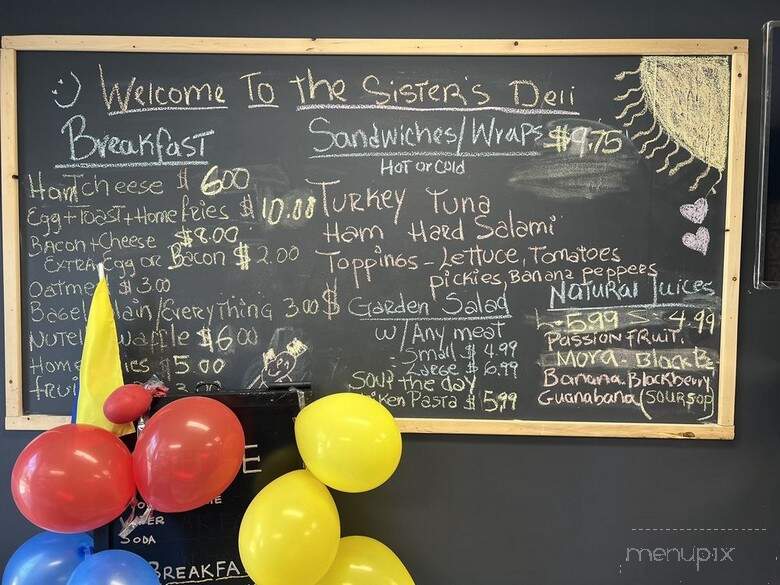 Welcome To the Sister's Deli
Breakfast
Ham+cheese $ 6.00
Egg+Toast+Home fries $ 10.00
Bacon+Cheese $8.00
Extra Egg or Bacon $ 2.00
$ 3.00
Plain/Everything 3.00$
$6.00
Home 5.00
3
Sandwiches/Wraps $9.75
Hot or Cold
Turkey Tuna
Ham Hard Salami
Toppings - Lettuce, Tomatoes
pickies, Banana peppers
Garden Salad
w/Any meat
Small $ 4.99
Large $ 6.99
Soup the day
Pasta $ 5.99
Natural Juices
L-5.99 S-4.99
Passion fruit.
Mora-BlackB
Banana-Blackberry
Guanabana/Soursop
E
Soda
BREAKFA
menupix